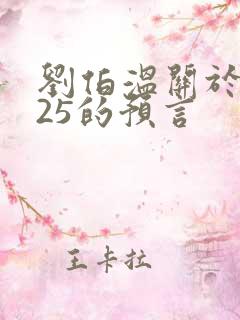 劉伯溫關於
25的預言
王卡拉